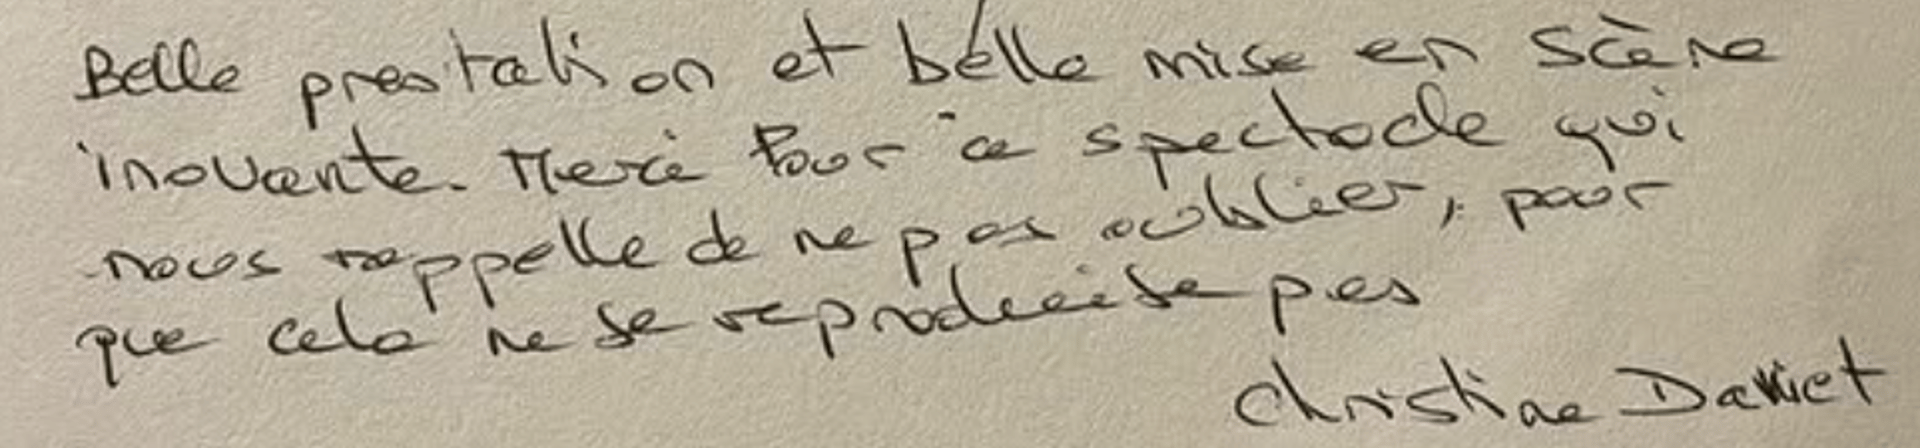 Belle prestation et belle mise en scène
inovante. Merci Pour ce spectacle qui
nous rappelle de ne pas oublier, pour
que cela ne se reproduise pas
Christine